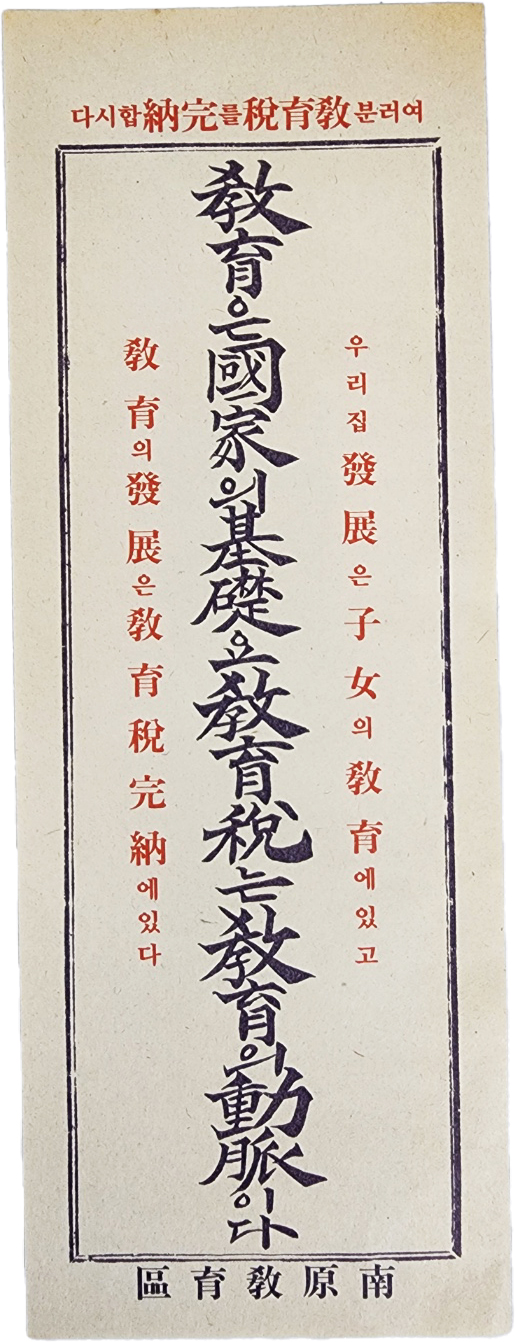 여러분敎育稅를完納합시다
우리집發展은子女의敎育에있고
敎育은國家의基礎요敎育稅는敎育의動脈이다
敎育의發展은敎育稅完納에있다
南原敎育區